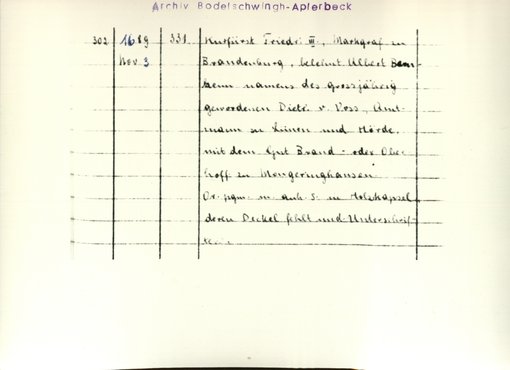 Archiv Bodelschwingh-Apferbeck
302 1689 331 Kurfürst Friedr. III, Markgraf zu
Nov. 3 Brandenburg, belehnt Albert Bem-
bem namens des grossjährig
gewordenen Dietr. v. Voss, Amt-
mann zu Lünen und Hörde,
mit dem Gut Brand- oder Ober-
hoff zu Mengeringhausen
Or. pgm. m. anh. S. in Holzkapsel,
deren Deckel fehlt und Unterschrif-
ten.